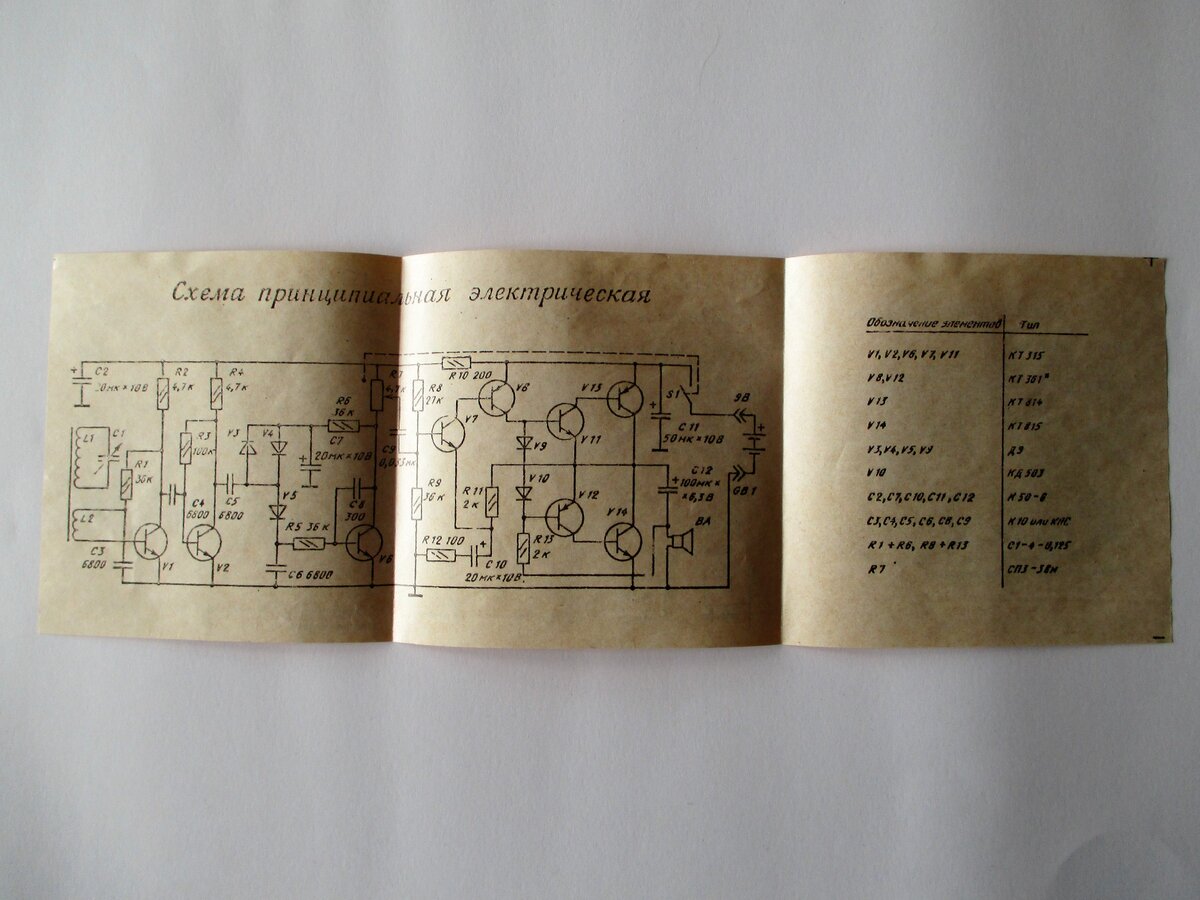 Схема принципиальная электрическая
C2
20мк×10В
R2
4,7к
R4
4,7к
L1
C1
R1
36к
R3
100к
V3
V4
R6
36к
C7
20мк×10В
4,7к
R8
27к
R10 200
V6
V13
V7
V9
V11
S1
9В
C11
50мк×10В
C9
0,033мк
L2
C4
6800
C5
6800
V5
C8
300
R9
36к
R11
2к
V10
V12
C12
100мк×
×6,3В
GB1
C3
6800
V1
V2
R5 36к
V6
R12 100
C10
20мк×10В
R13
2к
V14
BA
C6 6800
Обозначение элементов Тип
V1, V2, V6, V7, V11 КТ 315
V8, V12 КТ 361
V13 КТ 814
V14 КТ 815
V3, V4, V5, V9 Д9
V10 КД 503
C2, C7, C10, C11, C12 К50-6
C3, C4, C5, C6, C8, C9 К10 или КЛС
R1÷R6, R8÷R13 С1-4-0,125
R7 СП3-38м